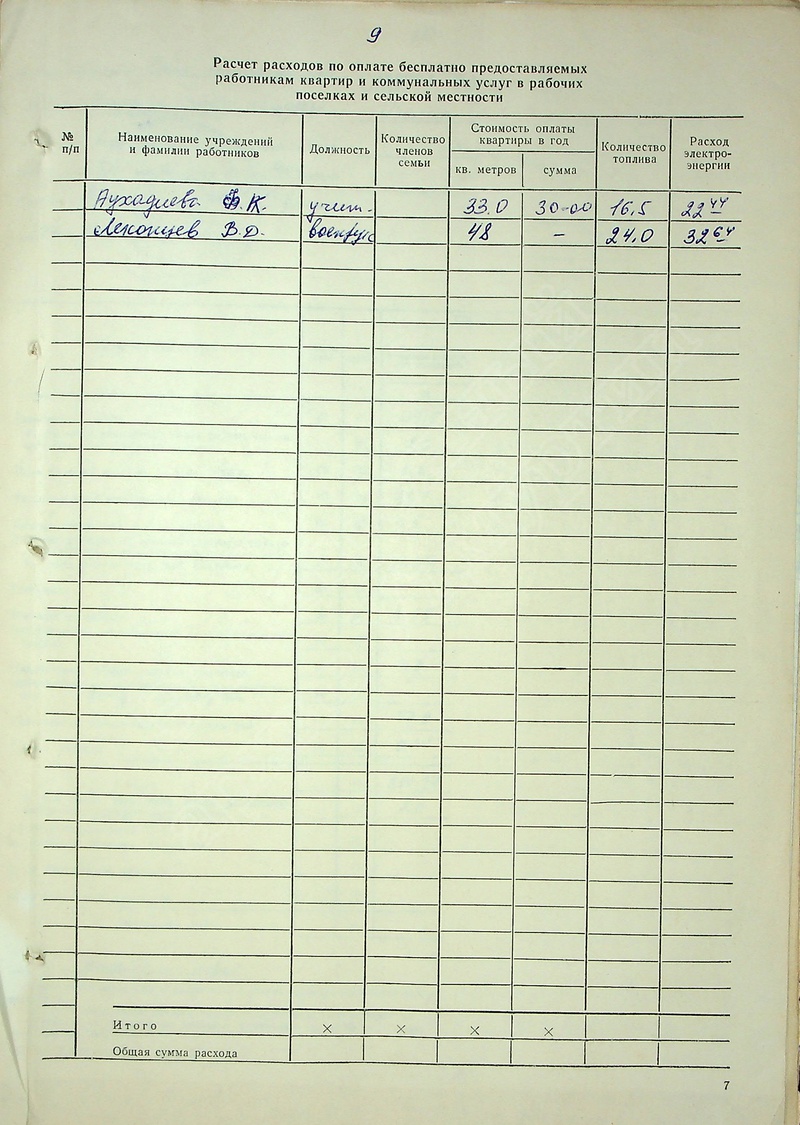 9
Расчет расходов по оплате бесплатно предоставляемых
работникам квартир и коммунальных услуг в рабочих
поселках и сельской местности
№ п/п
Наименование учреждений и фамилии работников
Должность
Количество членов семьи
Стоимость оплаты квартиры в год
кв. метров
сумма
Количество топлива
Расход электро-энергии
Аухадиева Ф.К. учит. 33.0 30-00 16,5 22 44
Лекомцев В.Д. военрук 48 – 24,0 32 64
Итого × × × ×
Общая сумма расхода
7